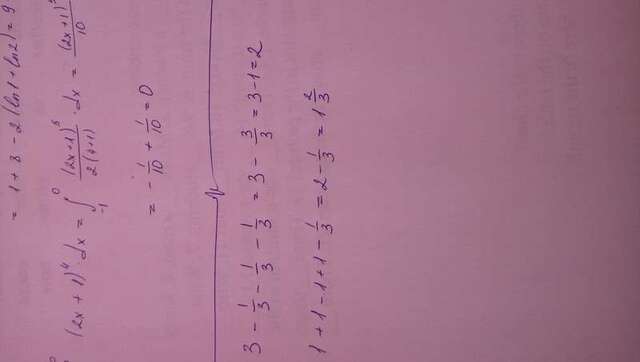 = 1 + 8 - 2(ln1 + ln2) = 9
(2x + 1)^4 · dx = ∫_{-1}^{0} (2x+1)^5 / 2(4+1) · dx = (2x+1)^5 / 10
= - 1/10 + 1/10 = 0
3 - 1/3 - 1/3 - 1/3 = 3 - 3/3 = 3 - 1 = 2
1 + 1 - 1 + 1 - 1/3 = 2 - 1/3 = 1 2/3